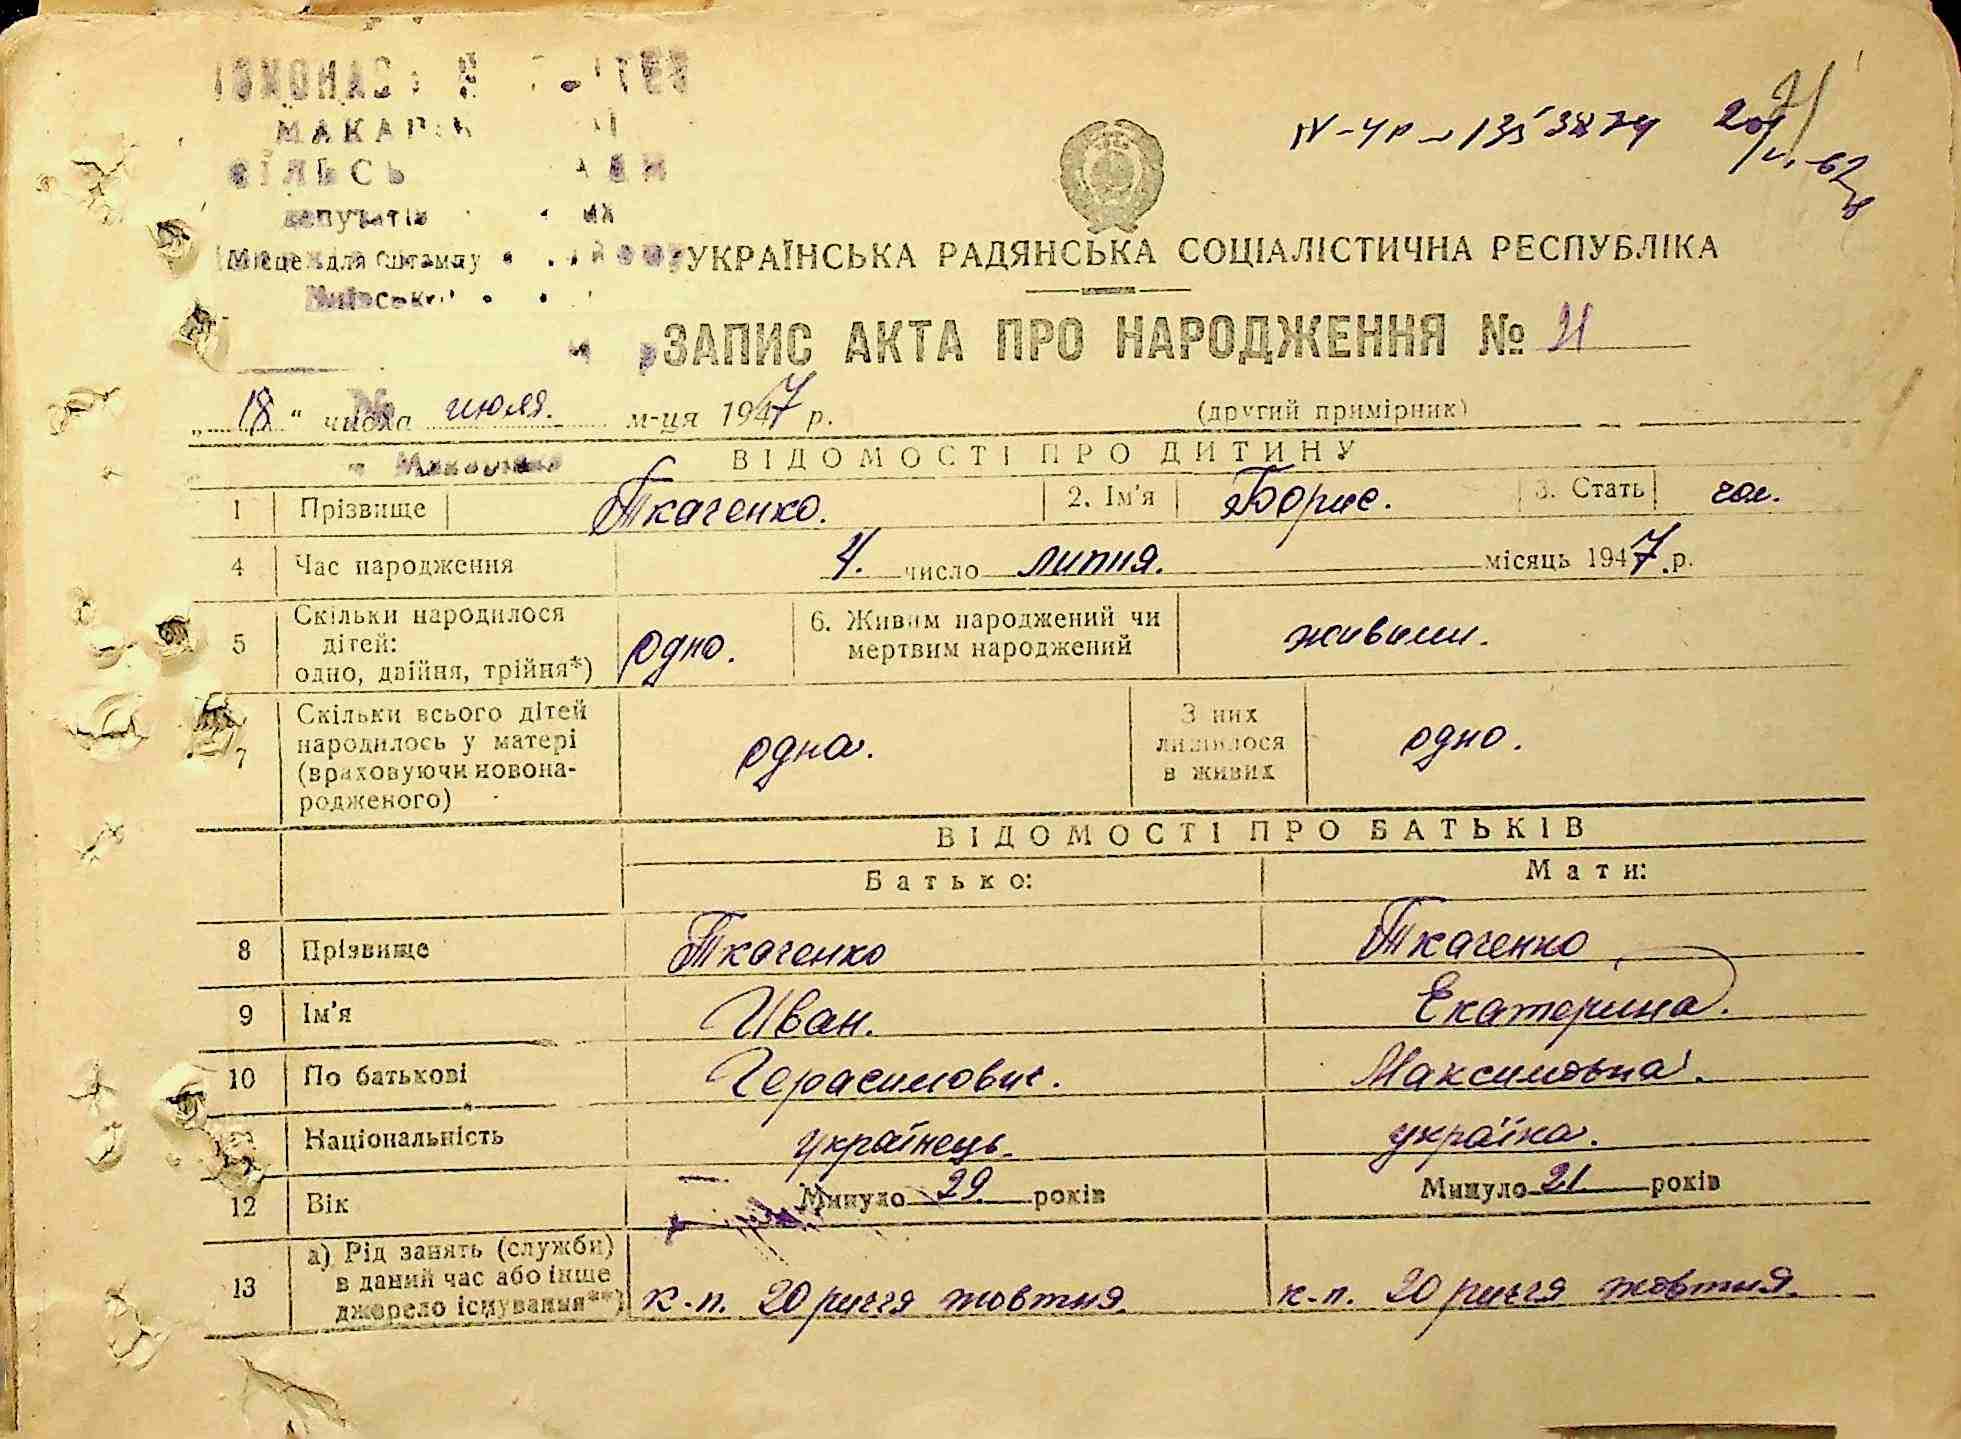 МАКАР
депутатів
(Місце для штампу
УКРАЇНСЬКА РАДЯНСЬКА СОЦІАЛІСТИЧНА РЕСПУБЛІКА
ЗАПИС АКТА ПРО НАРОДЖЕННЯ №
„18“ числа июля. м-ця 1947 р. (другий примірник)
ВІДОМОСТІ ПРО ДИТИНУ
1 Прізвище Ткаченко. 2. Ім'я Борис. 3. Стать чол.
4 Час народження 4. число липня. місяць 1947.р.
5 Скільки народилося дітей: одно, двійня, трійня*) одно. 6. Живим народжений чи мертвим народжений живими.
7 Скільки всього дітей народилось у матері (враховуючи новонародженого) одна. З них лишилося в живих одно.
ВІДОМОСТІ ПРО БАТЬКІВ
Батько: Мати:
8 Прізвище Ткаченко Ткаченко
9 Ім'я Иван. Екатерина.
10 По батькові Герасимович. Максимовна.
Національність українець. україка.
12 Вік Минуло 29 років Минуло 21 років
13 а) Рід занять (служби) в даний час або інше джерело існування**) к-п. 20 річчя жовтня. к-п. 20 річчя жовтня.